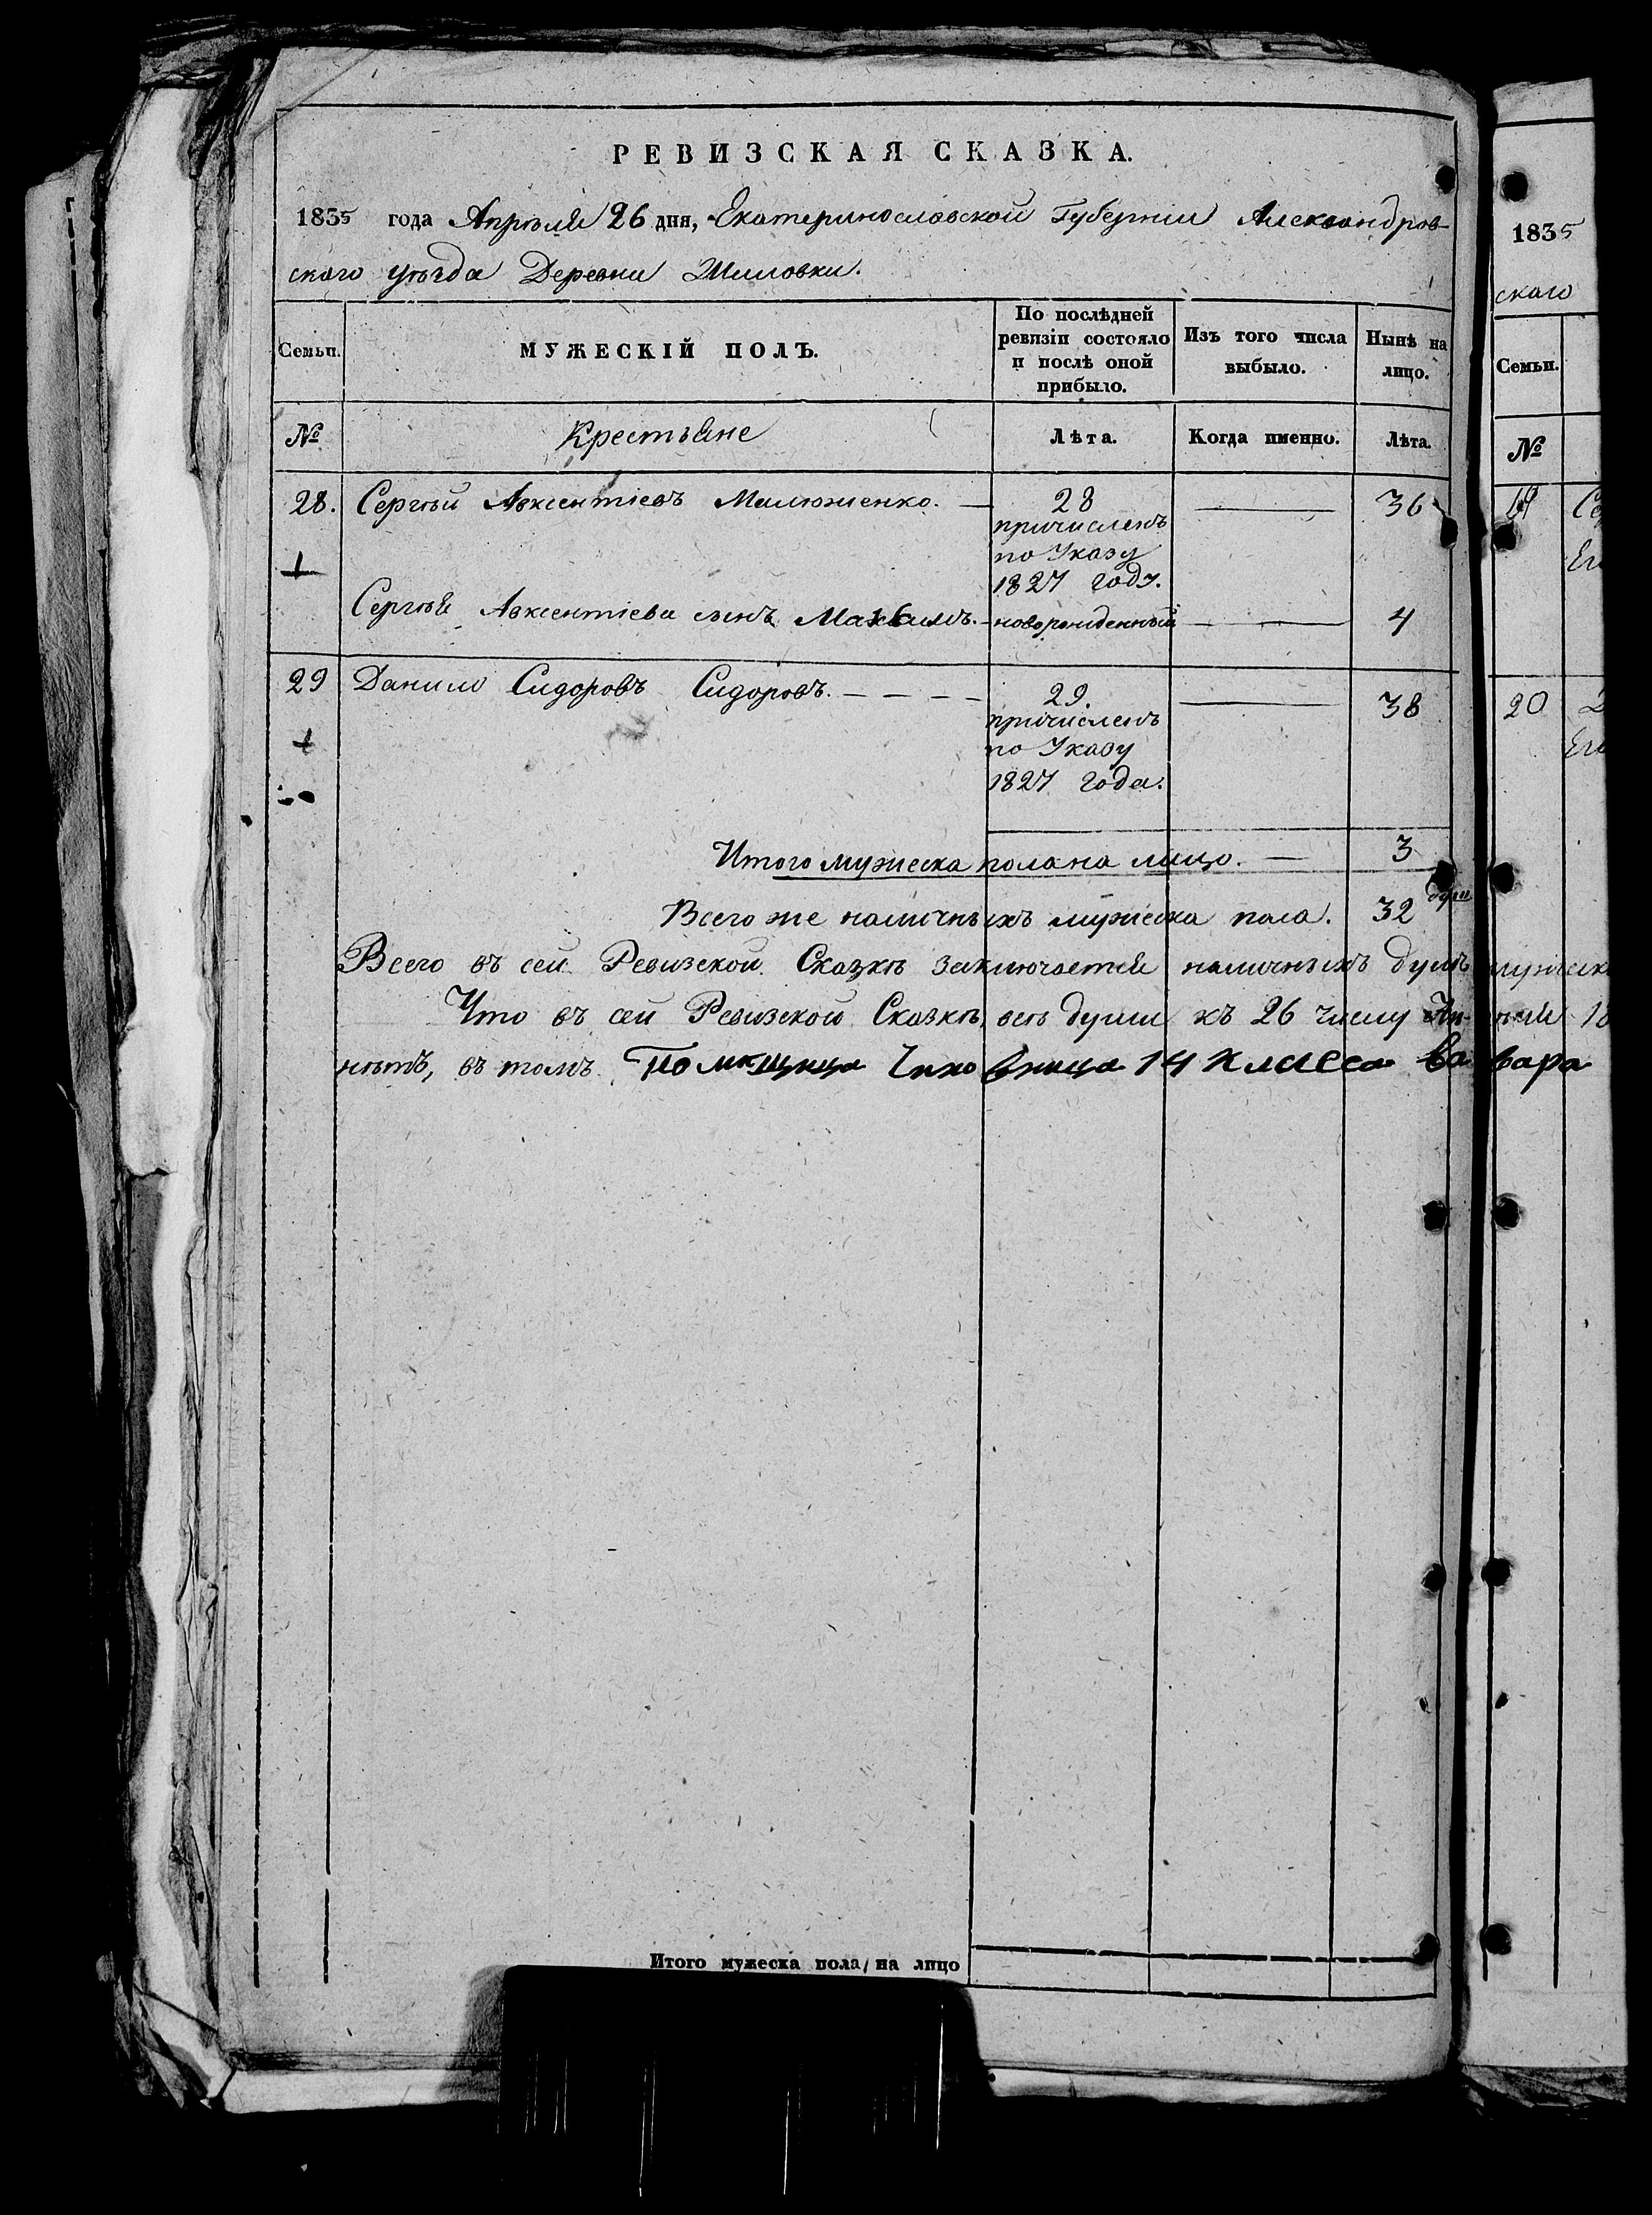 РЕВИЗСКАЯ СКАЗКА.
1835 года Апрѣля 26 дня, Екатеринославской Губерніи Александров-
скаго уѣзда Деревни Шиловки.
Семьи. МУЖЕСКІЙ ПОЛЪ. По послѣдней ревизіи состояло и послѣ оной прибыло. Изъ того числа выбыло. Нынѣ на лицо.
№ Крестьяне Лѣта. Когда именно. Лѣта.
28. Сергѣй Авксентіевъ Малюженко. — 28 — 36
причисленъ
по Указу
1827 году.
Сергѣя Авксентіева сынъ Максимъ. — новорожденный — 4
29 Данило Сидоровъ Сидоровъ. — — — — 29. — 38
причисленъ
по Указу
1827 года.
Итого мужеска пола на лицо. — 3
Всего же наличныхъ мужеска пола. 32 души
Всего въ сей Ревизской Сказкѣ заключается наличныхъ душъ мужеск
Что въ сей Ревизской Сказкѣ, всѣ души къ 26 числу 18
нѣтъ, въ томъ Помещица 14 класса Варвара
Итого мужеска пола на лицо
1835
скаго
Семьи.
№
19
20